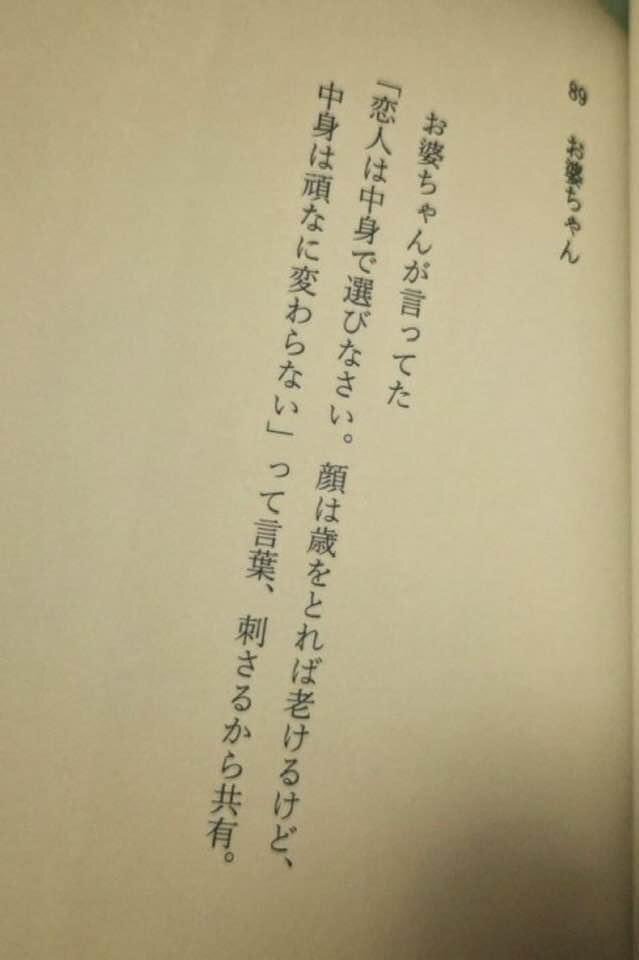 89 お婆ちゃん
お婆ちゃんが言ってた
「恋人は中身で選びなさい。顔は歳をとれば老けるけど、
中身は頑なに変わらない」って言葉、刺さるから共有。